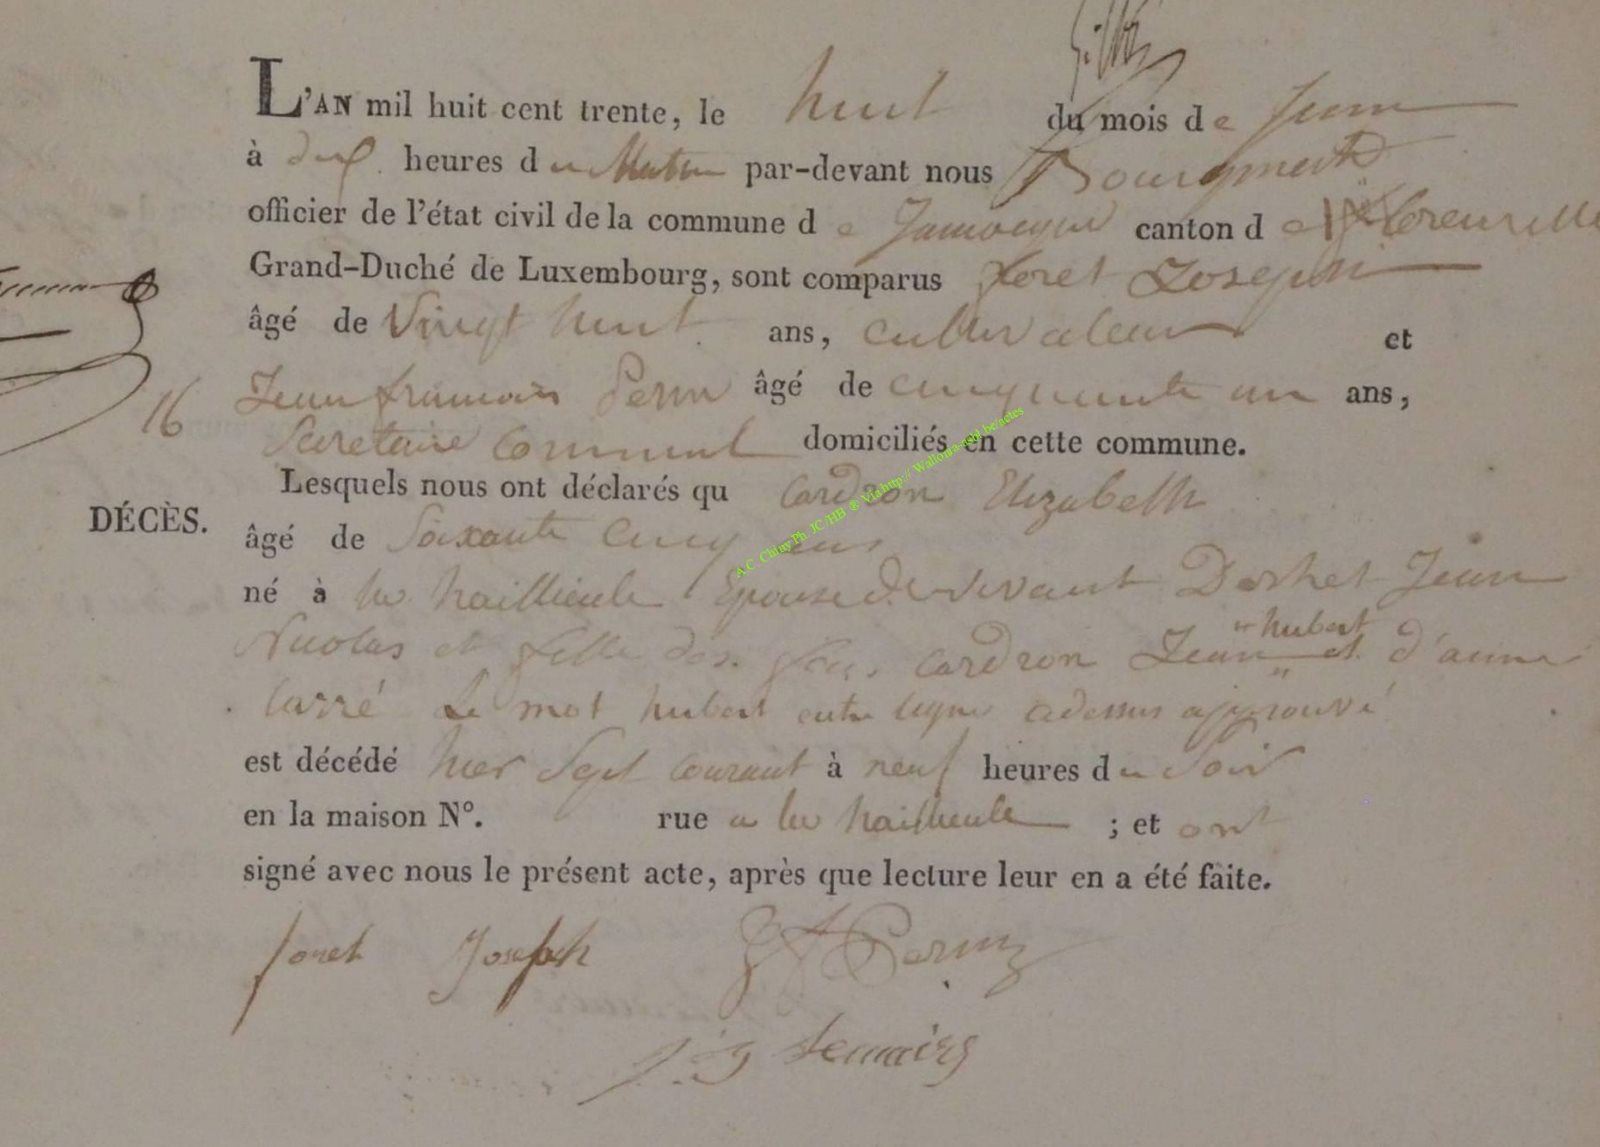 L'AN mil huit cent trente, le huit du mois de Juin
à dix heures du Matin par-devant nous Bourgmestre
officier de l'état civil de la commune de Jamoigne canton de florenville
Grand-Duché de Luxembourg, sont comparus foret Joseph
âgé de Vingt huit ans, cultivateur et
16 Jean françois Perin âgé de cinquante un ans,
Secretaire Communal domiciliés en cette commune.
Lesquels nous ont déclarés qu Cardron Elizabeth
DÉCÈS.
âgé de Soixante Cinq ans
né à la hailleule Epouse de vivant Jean
Nicolas et fille des feus Cardron Jean "hubert et d'anne
Carré Le mot hubert entre ligne adessus approuvé
est décédé hier Sept Courant à neuf heures du Soir
en la maison N°. rue a la hailleule ; et ont
signé avec nous le présent acte, après que lecture leur en a été faite.
foret Joseph JF Perin
Lemaire
A.C. Chiny Ph. JC/HB ® Via http:// Wallonia-asbl.be/actes